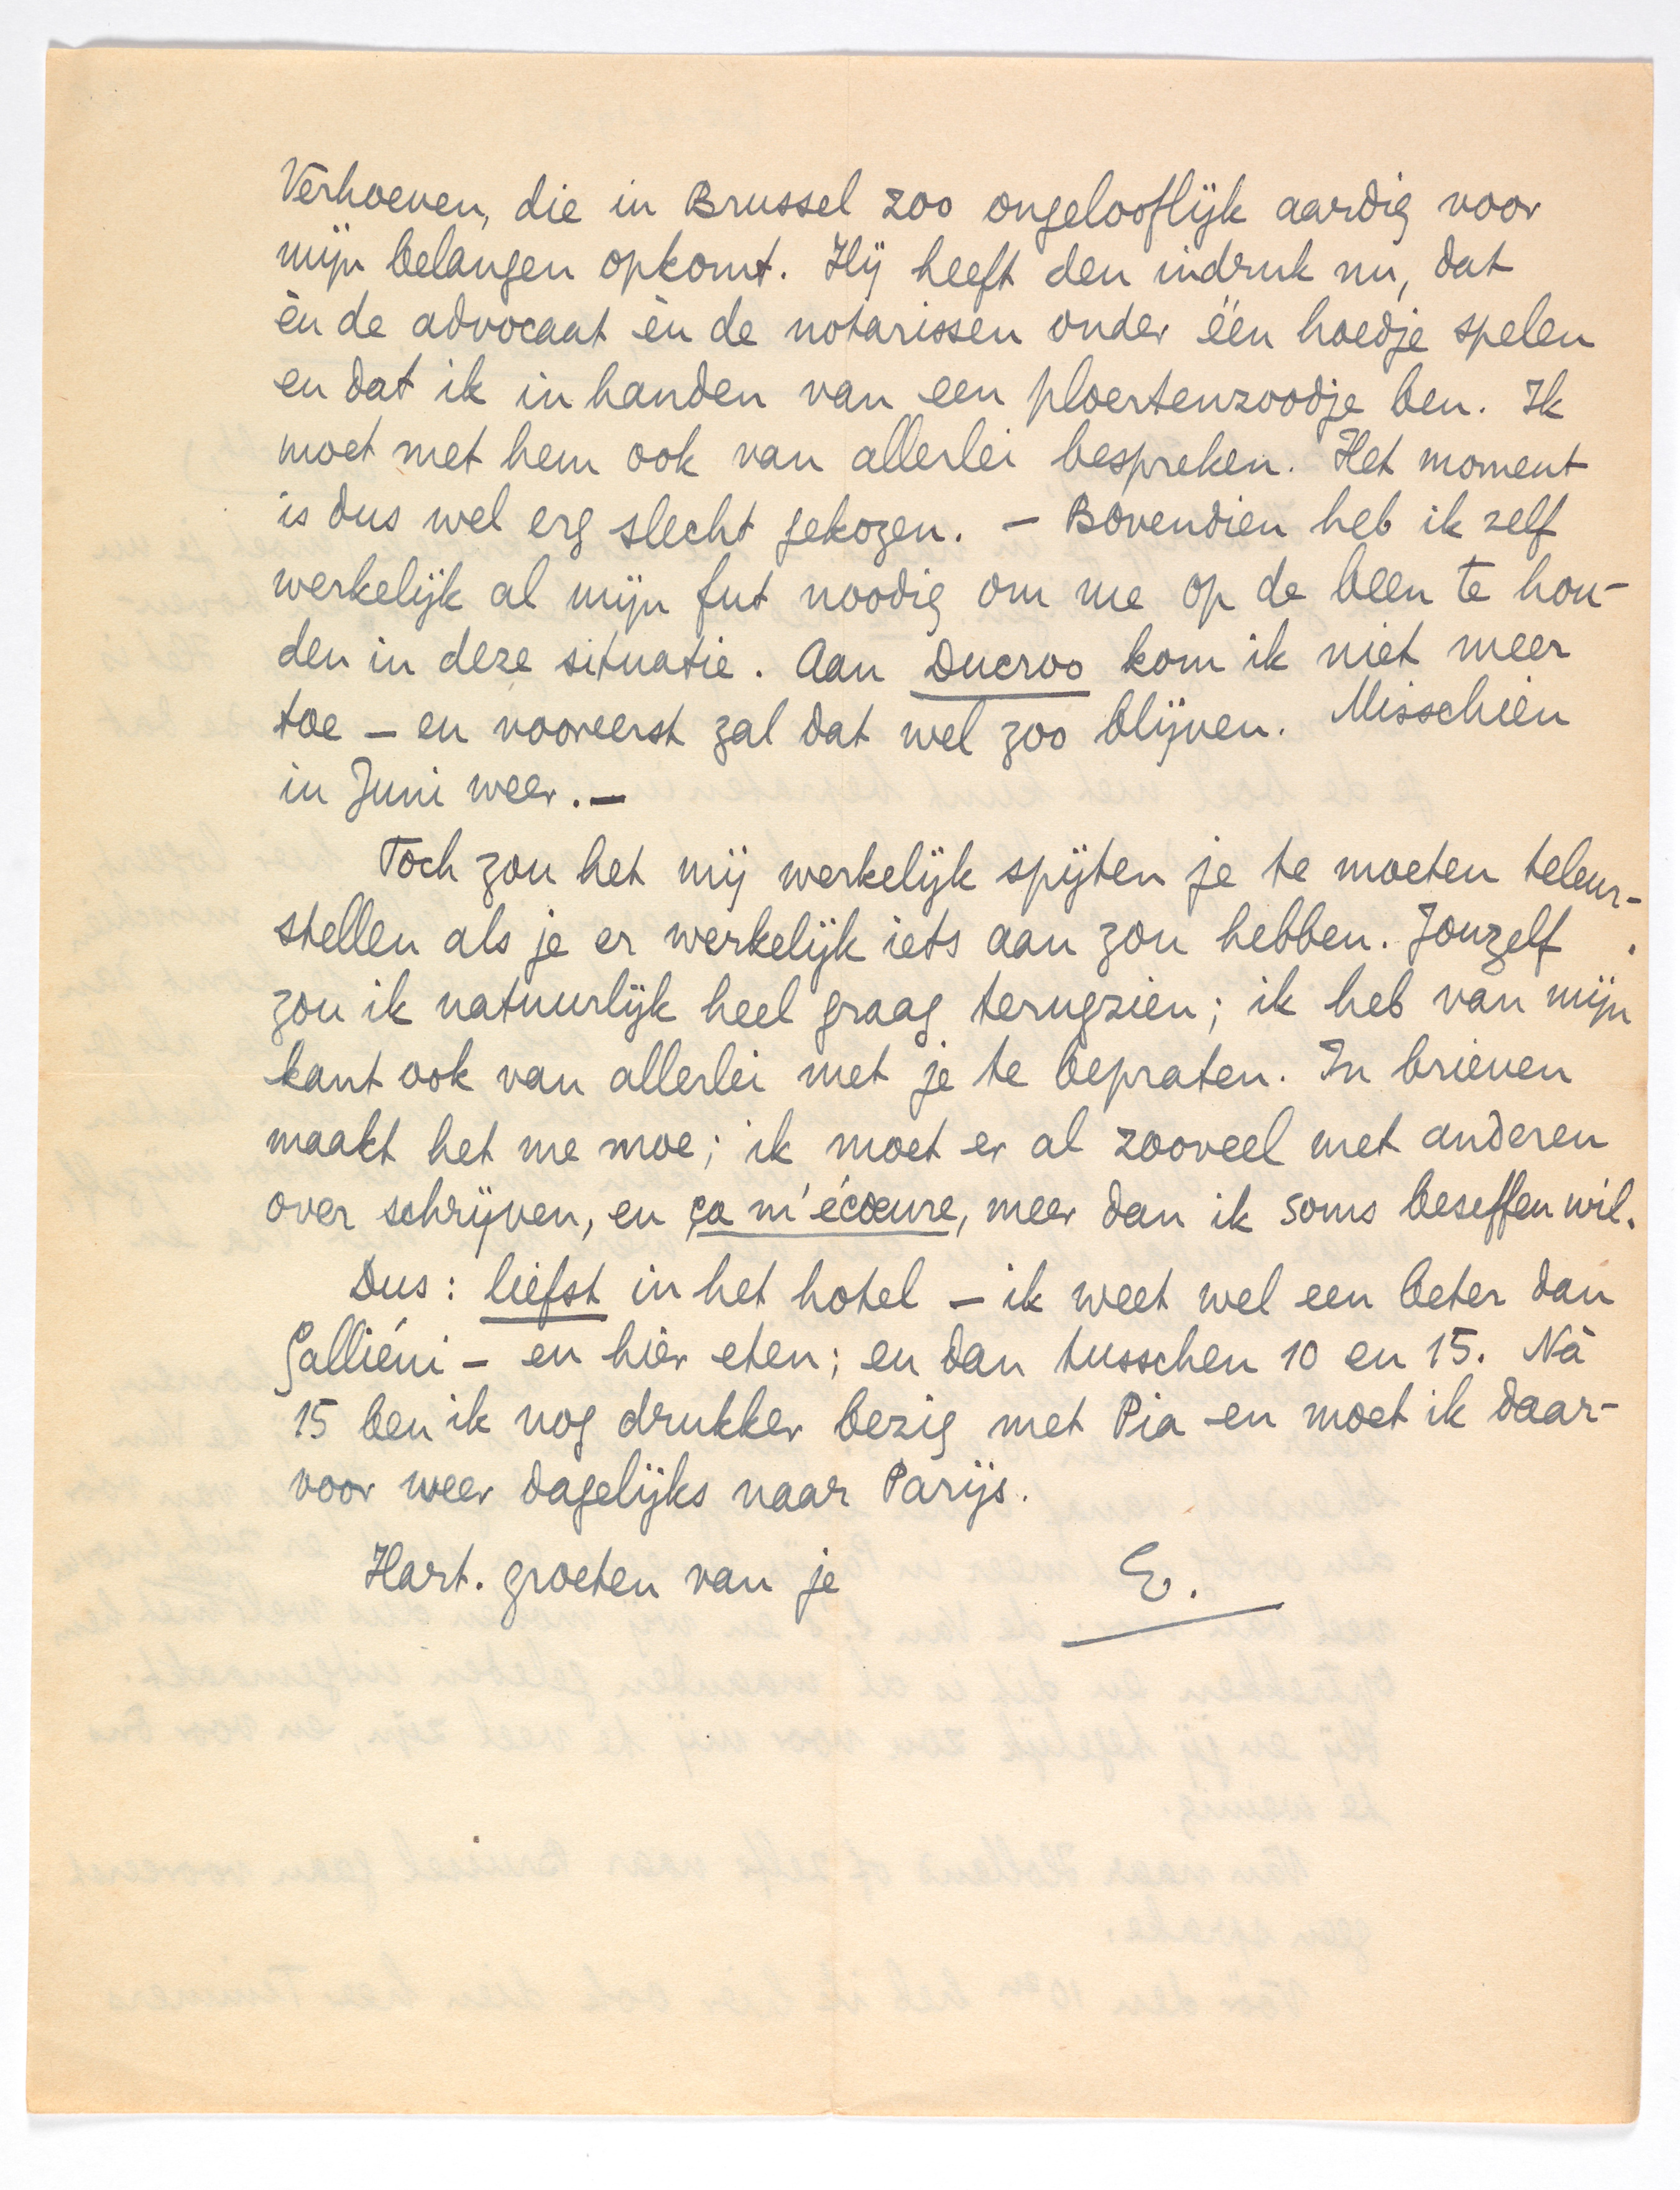 Verhoeven, die in Brussel zoo ongelooflijk aardig voor
mijn belangen opkomt. Hij heeft den indruk nu, dat
èn de advocaat èn de notarissen onder één hoedje spelen
en dat ik in handen van een ploertenzoodje ben. Ik
moet met hem ook van allerlei bespreken. Het moment
is dus wel erg slecht gekozen. – Bovendien heb ik zelf
werkelijk al mijn fut noodig om me op de been te hou-
den in deze situatie. Aan Ducroo kom ik niet meer
toe – en vooreerst zal dat wel zoo blijven. Misschien
in Juni weer. –
Toch zou het mij werkelijk spijten je te moeten teleur-
stellen als je er werkelijk iets aan zou hebben. Jouzelf
zou ik natuurlijk heel graag terugzien; ik heb van mijn
kant ook van allerlei met je te bepraten. In brieven
maakt het me moe; ik moet er al zooveel met anderen
over schrijven, en ça m'écœure, meer dan ik soms beseffen wil.
Dus: liefst in het hotel – ik weet wel een beter dan
Galliéni – en hier eten; en dan tusschen 10 en 15. Nà
15 ben ik nog drukker bezig met Pia en moet ik daar-
voor weer dagelijks naar Parijs.
Hart. groeten van je E.